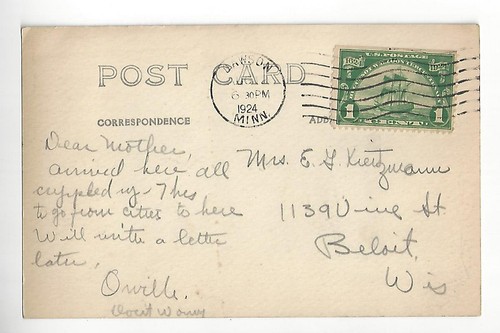 POST CARD
DAWSON
6 30PM
1924
MINN.
U.S. POSTAGE
1 1
CORRESPONDENCE
Dear Mother,
arrived here all
crippled up 7 hrs
to go from cities to here
Will write a letter
later,
Orville.
Dont worry
Mrs. E. G. Kietzmann
1139 Vine St
Beloit,
Wis